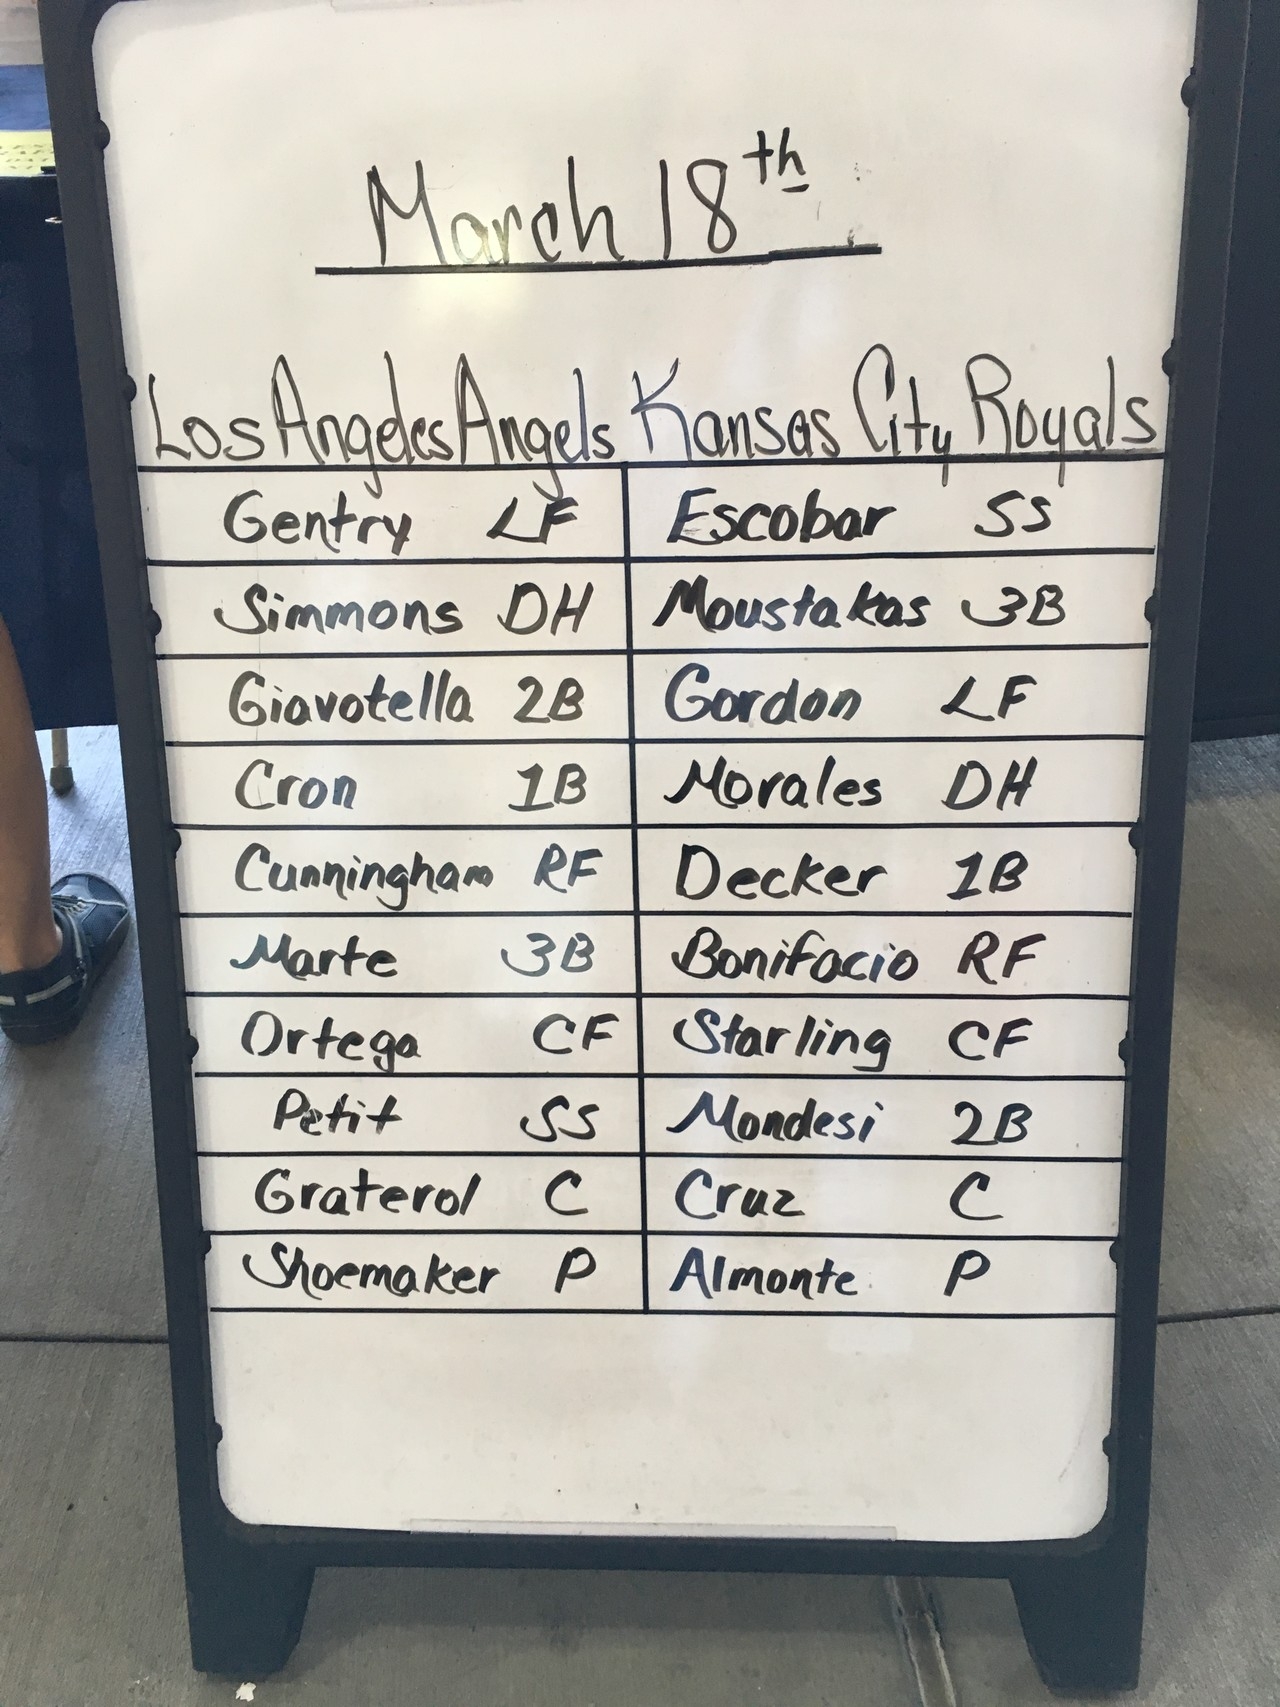 March 18th
Los Angeles Angels Kansas City Royals
Gentry LF Escobar SS
Simmons DH Moustakas 3B
Giavotella 2B Gordon LF
Cron 1B Morales DH
Cunningham RF Decker 1B
Marte 3B Bonifacio RF
Ortega CF Starling CF
Petit SS Mondesi 2B
Graterol C Cruz C
Shoemaker P Almonte P